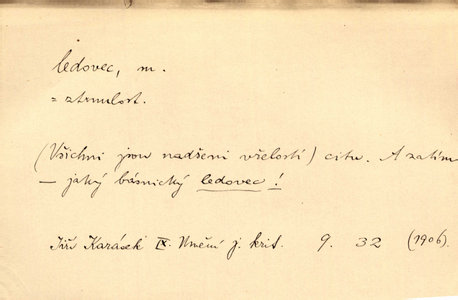 ledovec, m.
= ztrnulost.
(Všichni jsou nadšeni vřelostí) citu. A zatím
— jaký básnický ledovec!
Jiří Karásek IX. Umění j. krit. 9. 32 (1906).